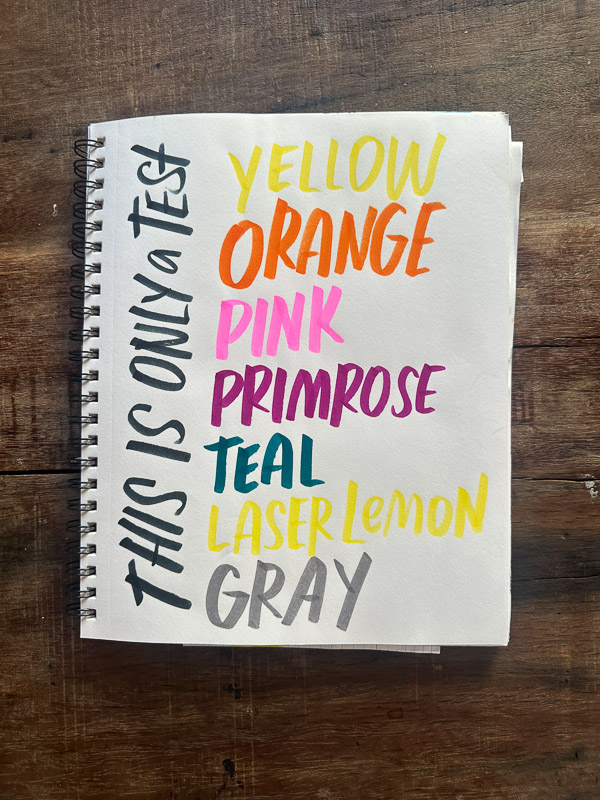 THIS IS ONLY a TEST
YELLOW
ORANGE
PINK
PRIMROSE
TEAL
LASER LeMON
GRAY